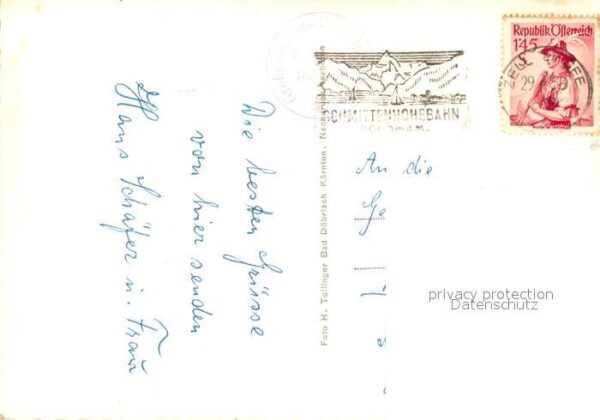 Die besten Grüsse
von hier senden
Hans Schäfer u. Frau
Foto H. Tollinger Bad Döbriach Kärnten.
SCHMITTENHÖHEBAHN
Republik Österreich
1'45
ZELL
SEE
29.
An die
Ge
privacy protection
Datenschutz